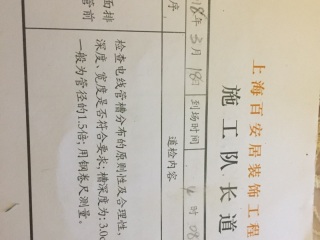 上海百安居装饰工程
施工队长道
18年5月18日 到场时间 时
序 道检内容
检查电线管槽分布的原则性及合理性，
深度、宽度是否符合要求；槽深度为：3.0c
一般为管径的1.5倍；用钢卷尺测量。
面排
管前